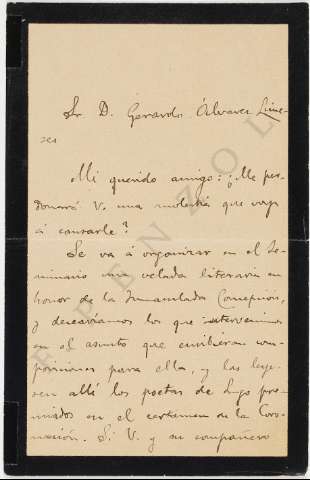 Sr. D. Gerardo Álvarez Lime-
ses
Mi querido amigo: ¿Me per-
donará V. una molestia que voy
á causarle?
Se va á organizar en el Se-
minario una velada literaria en
honor de la Inmaculada Concepción,
y desearíamos los que intervenimos
en el asunto que enviaran com-
posiciones para ella, y las leye-
sen allí los poetas de Lugo pre-
miados en el certamen de la Coro-
nación. Si V. y su compañero
PENZOL